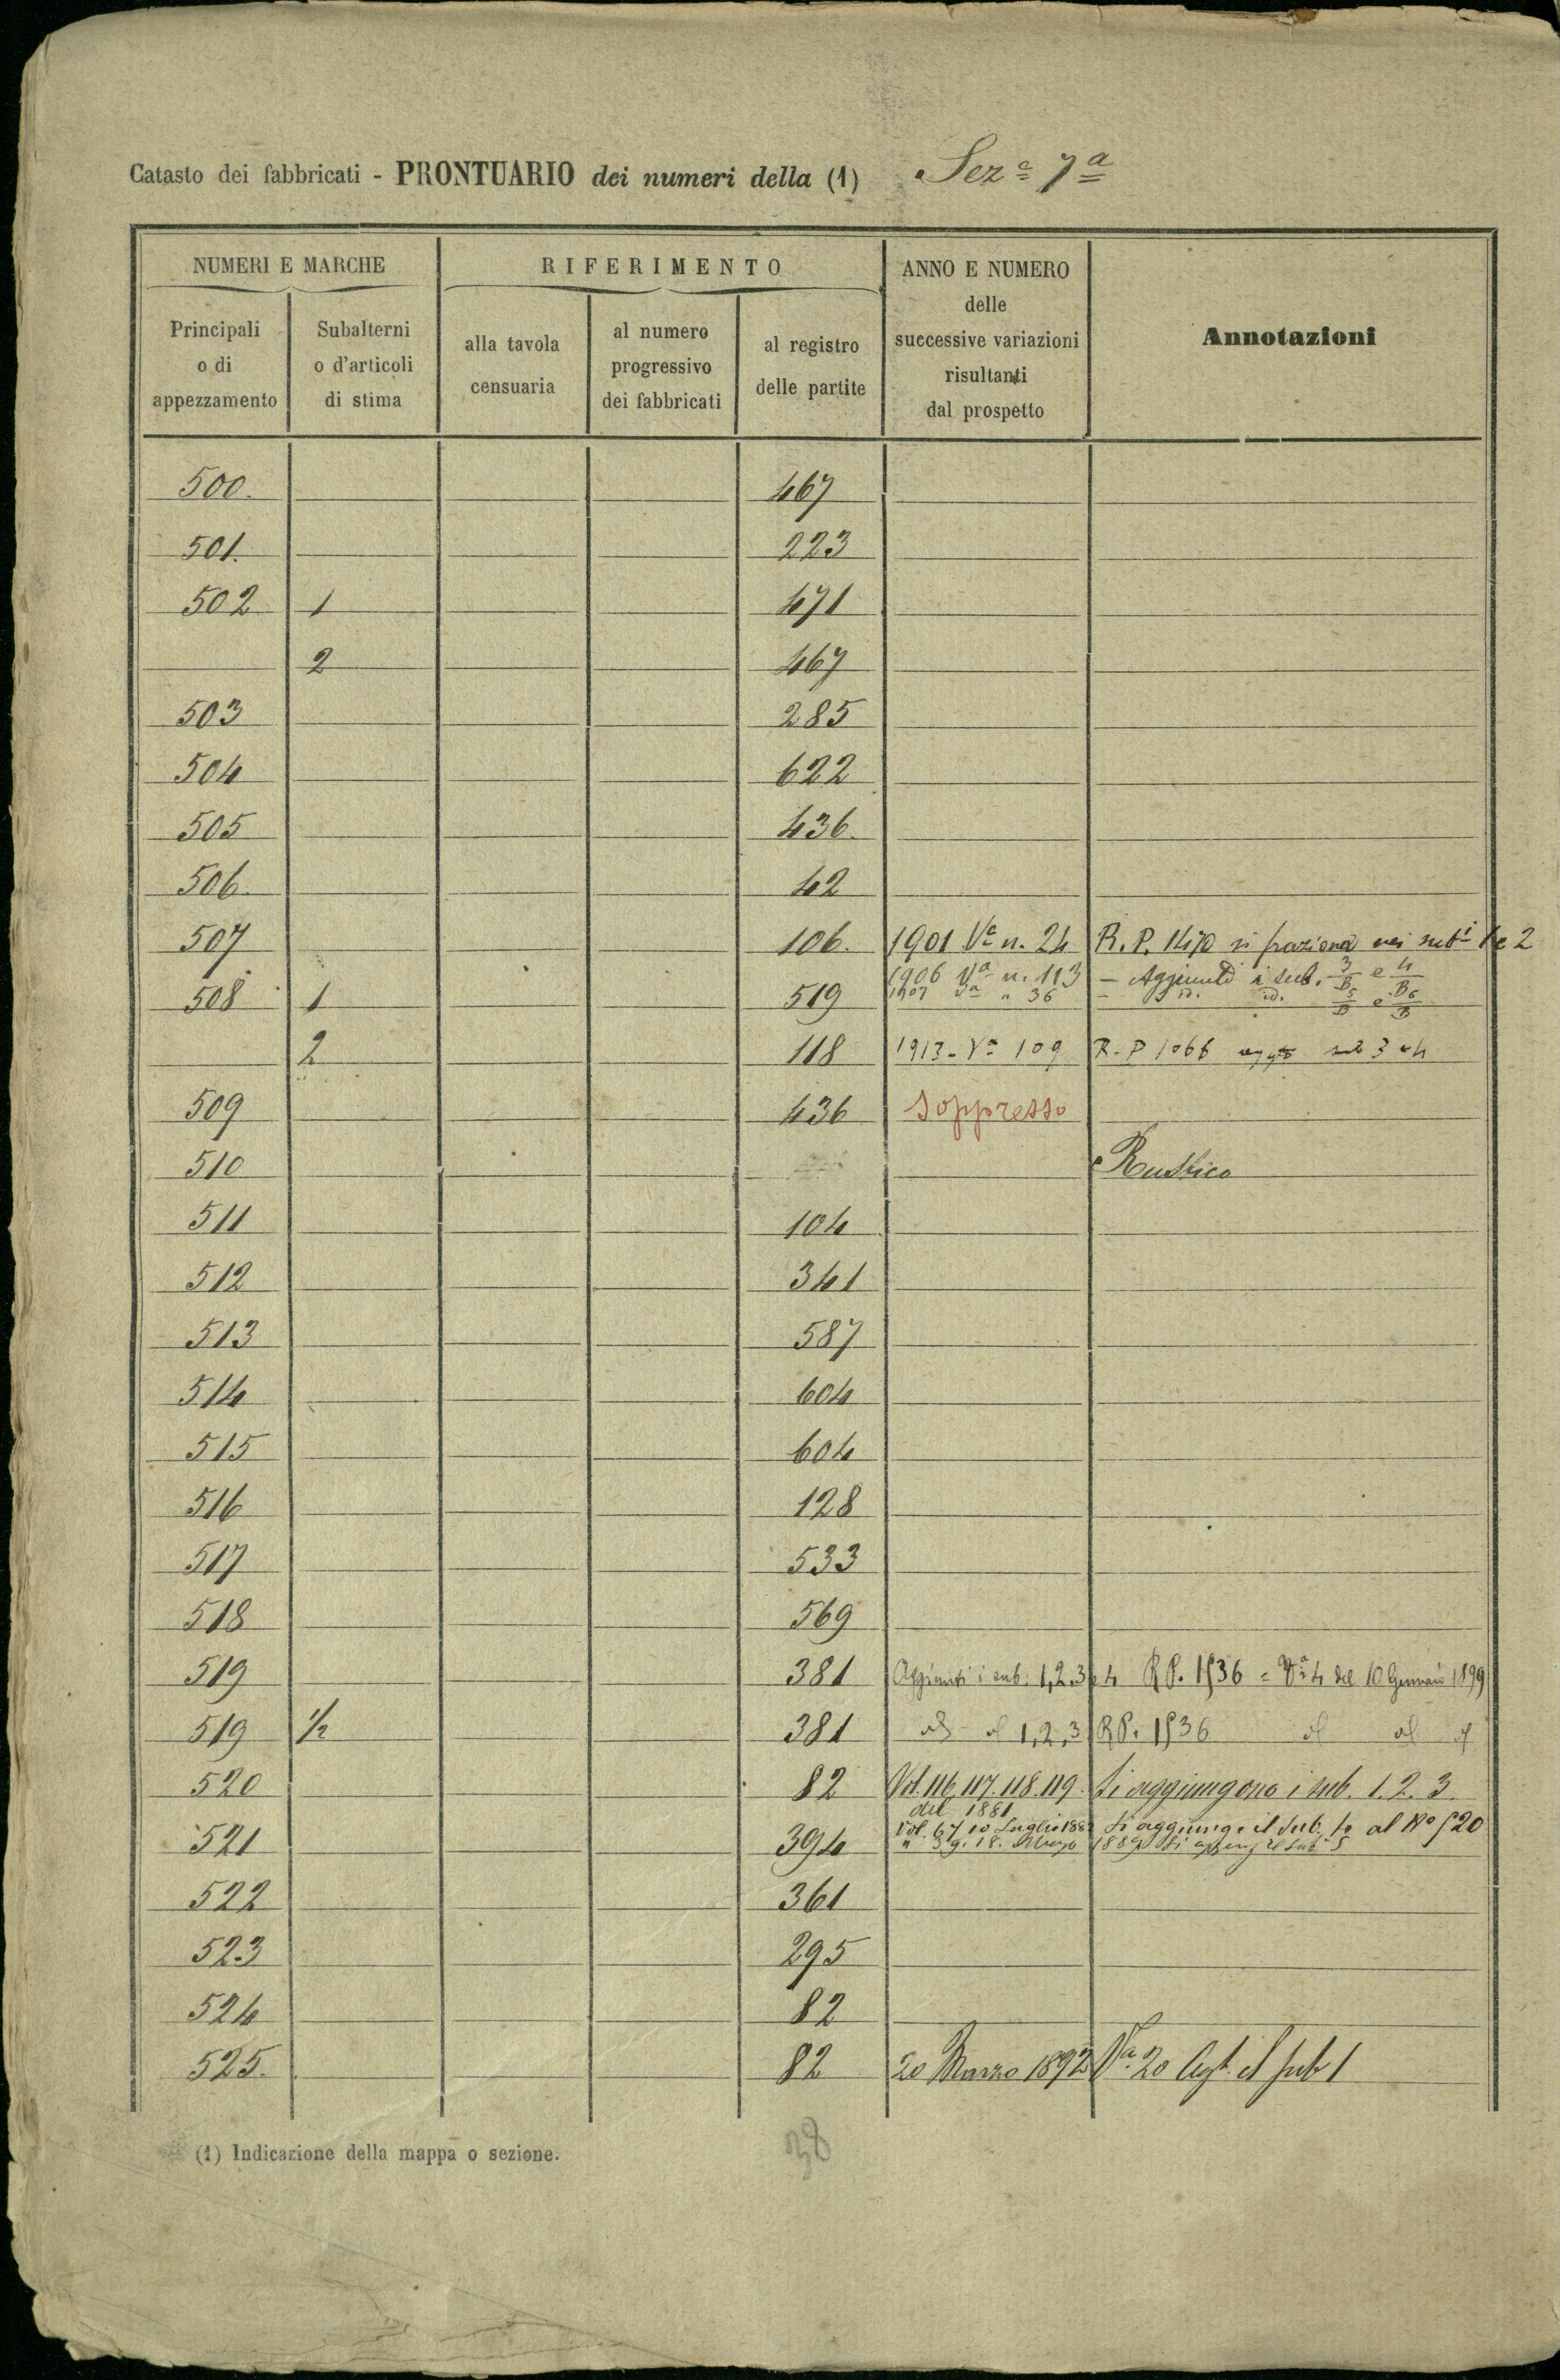 Catasto dei fabbricati - PRONTUARIO dei numeri della (1) Sez.e 7a
NUMERI E MARCHE
RIFERIMENTO
ANNO E NUMERO
delle
successive variazioni
risultanti
dal prospetto
Annotazioni
Principali
o di
appezzamento
Subalterni
o d'articoli
di stima
alla tavola
censuaria
al numero
progressivo
dei fabbricati
al registro
delle partite
500. 467
501. 223
502 1 471
2 467
503 285
504 622
505 436.
506. 42
507 106. 1901 Va n. 24 R. P. 1470 si fraziona nei subi 1 e 2
1906 Va n. 113 – Aggiunti i sub. 3/B e 4/B
508 1 519 1907 Va " 36 – id. id. 5/B e 6/B
2 118 1913 - Va 109 R. P 1066 sub 3 e 4
509 436 Soppresso
510 Rustico
511 104
512 341
513 587
514 604
515 604
516 128
517 533
518 569
519 381 Aggiunti i sub. 1, 2, 3 e 4 RP. 1536 = Va 4 del 10 Gennaio 1899
519 1/2 381 1, 2, 3 RP. 1536
520 82 Vol. 116, 117. 118. 119. Si aggiungono i sub. 1. 2. 3.
del 1881
521 394 Vol. 67 10 Luglio 188 Si aggiunge il Sub. 4 al No 520
" 39. 18. Marzo 1889 Si il Sub 5
522 361
523 295
524 82
525. 82 20 Marzo 1892 Va 20 Agt. il sub 1
(1) Indicazione della mappa o sezione.
38